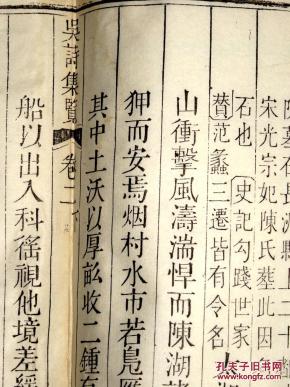 宋光宗妃陳氏塟此因
石也 史記勾踐世家
贊范蠡三遷皆有令名
山衝擊風濤湍悍而陳湖
狎而安焉烟村水市若鳧雁
其中土沃以厚畝收二鍾有
吳詩集覽 卷二
船以出入科徭視他境差緩
孔夫子旧书网